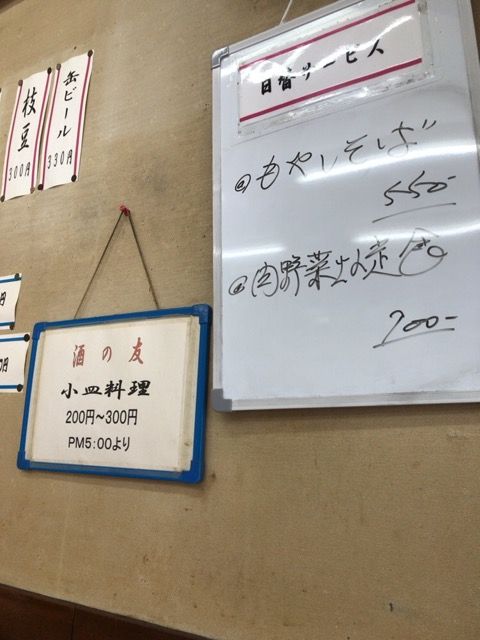 枝豆
300円
缶ビール
330円
日替サービス
もやしそば
550-
肉野菜炒め定食
700-
酒の友
小皿料理
200円～300円
PM5:00より
円
0円